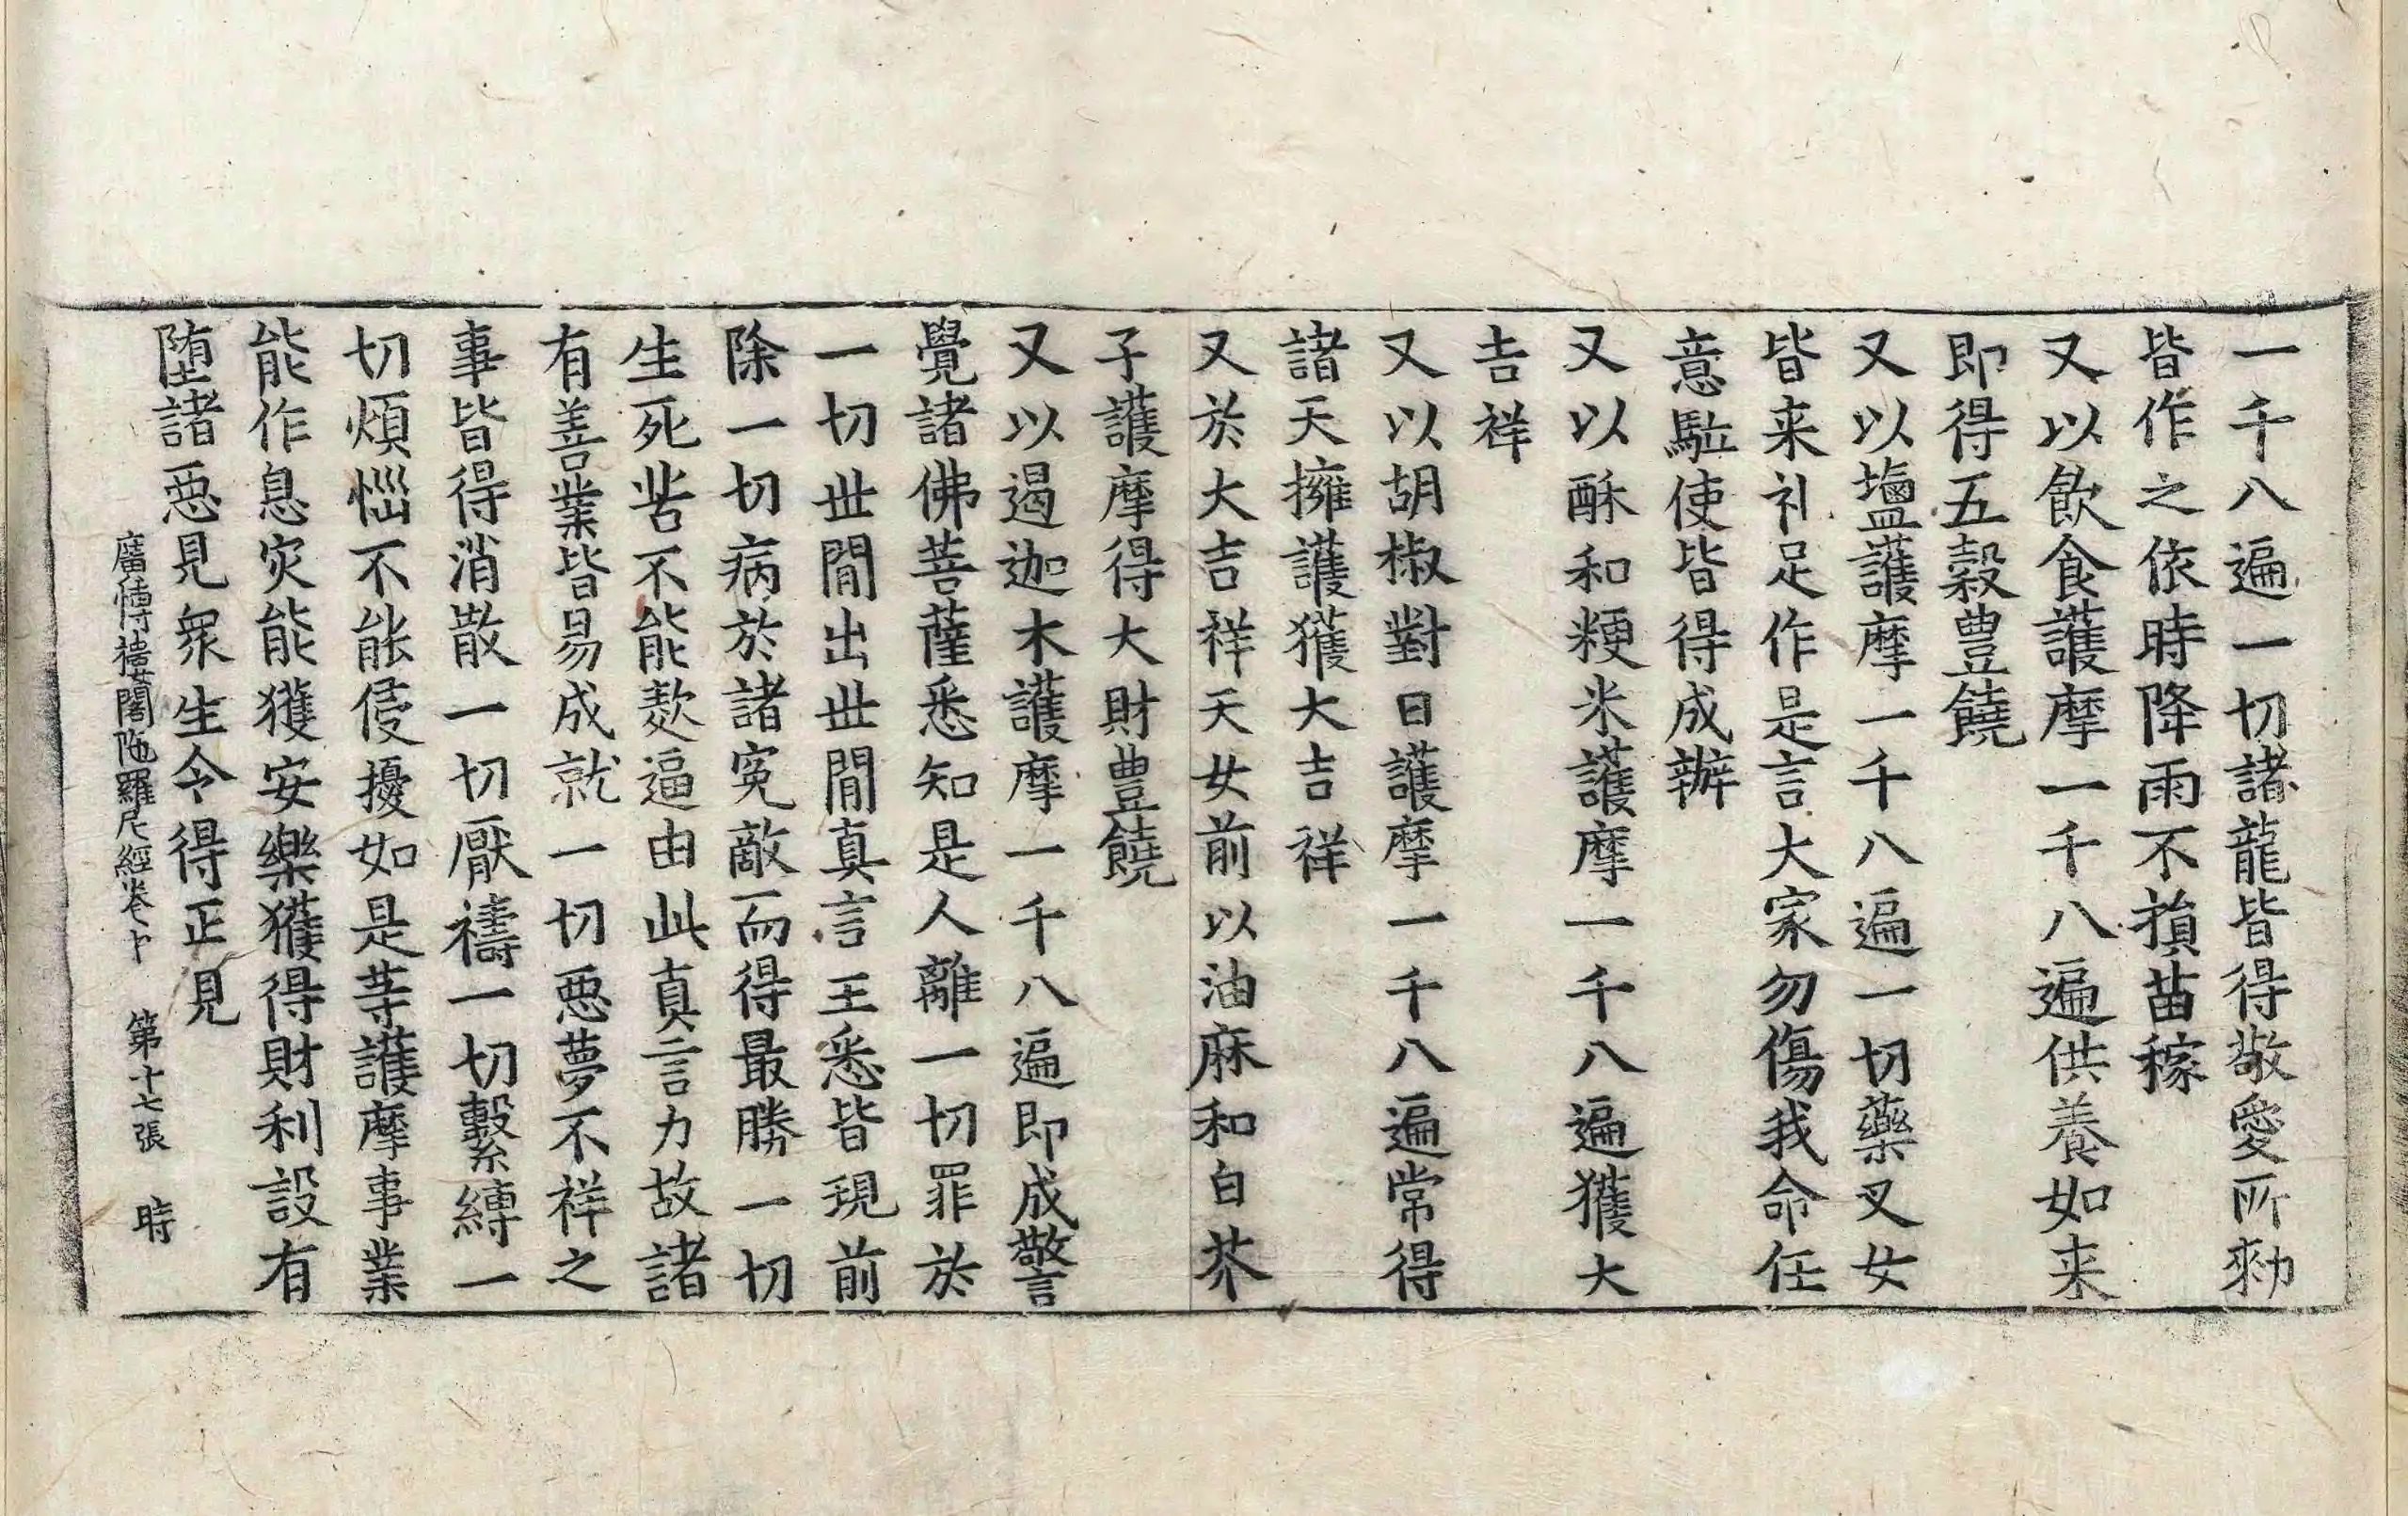 一千八遍一切諸龍皆得敬愛所勑
皆作之依時降雨不損苗稼
又以飲食護摩一千八遍供養如来
即得五穀豊饒
又以塩護摩一千八遍一切藥叉女
皆来礼足作是言大家勿傷我命任
意駈使皆得成辦
又以酥和粳米護摩一千八遍獲大
吉祥
又以胡椒對日護摩一千八遍常得
諸天擁護獲大吉祥
又於大吉祥天女前以油麻和白芥
子護摩得大財豊饒
又以遏迦木護摩一千八遍即成警
覺諸佛菩薩悉知是人離一切罪於
一切世間出世間真言王悉皆現前
除一切病於諸冤敵而得最勝一切
生死苦不能欺逼由此真言力故諸
有善業皆易成就一切惡夢不祥之
事皆得消散一切厭禱一切繫縛一
切煩惱不能侵擾如是等護摩事業
能作息灾能獲安樂獲得財利設有
堕諸惡見衆生令得正見
廣博樓閣陁羅尼經卷下 第十七張 時